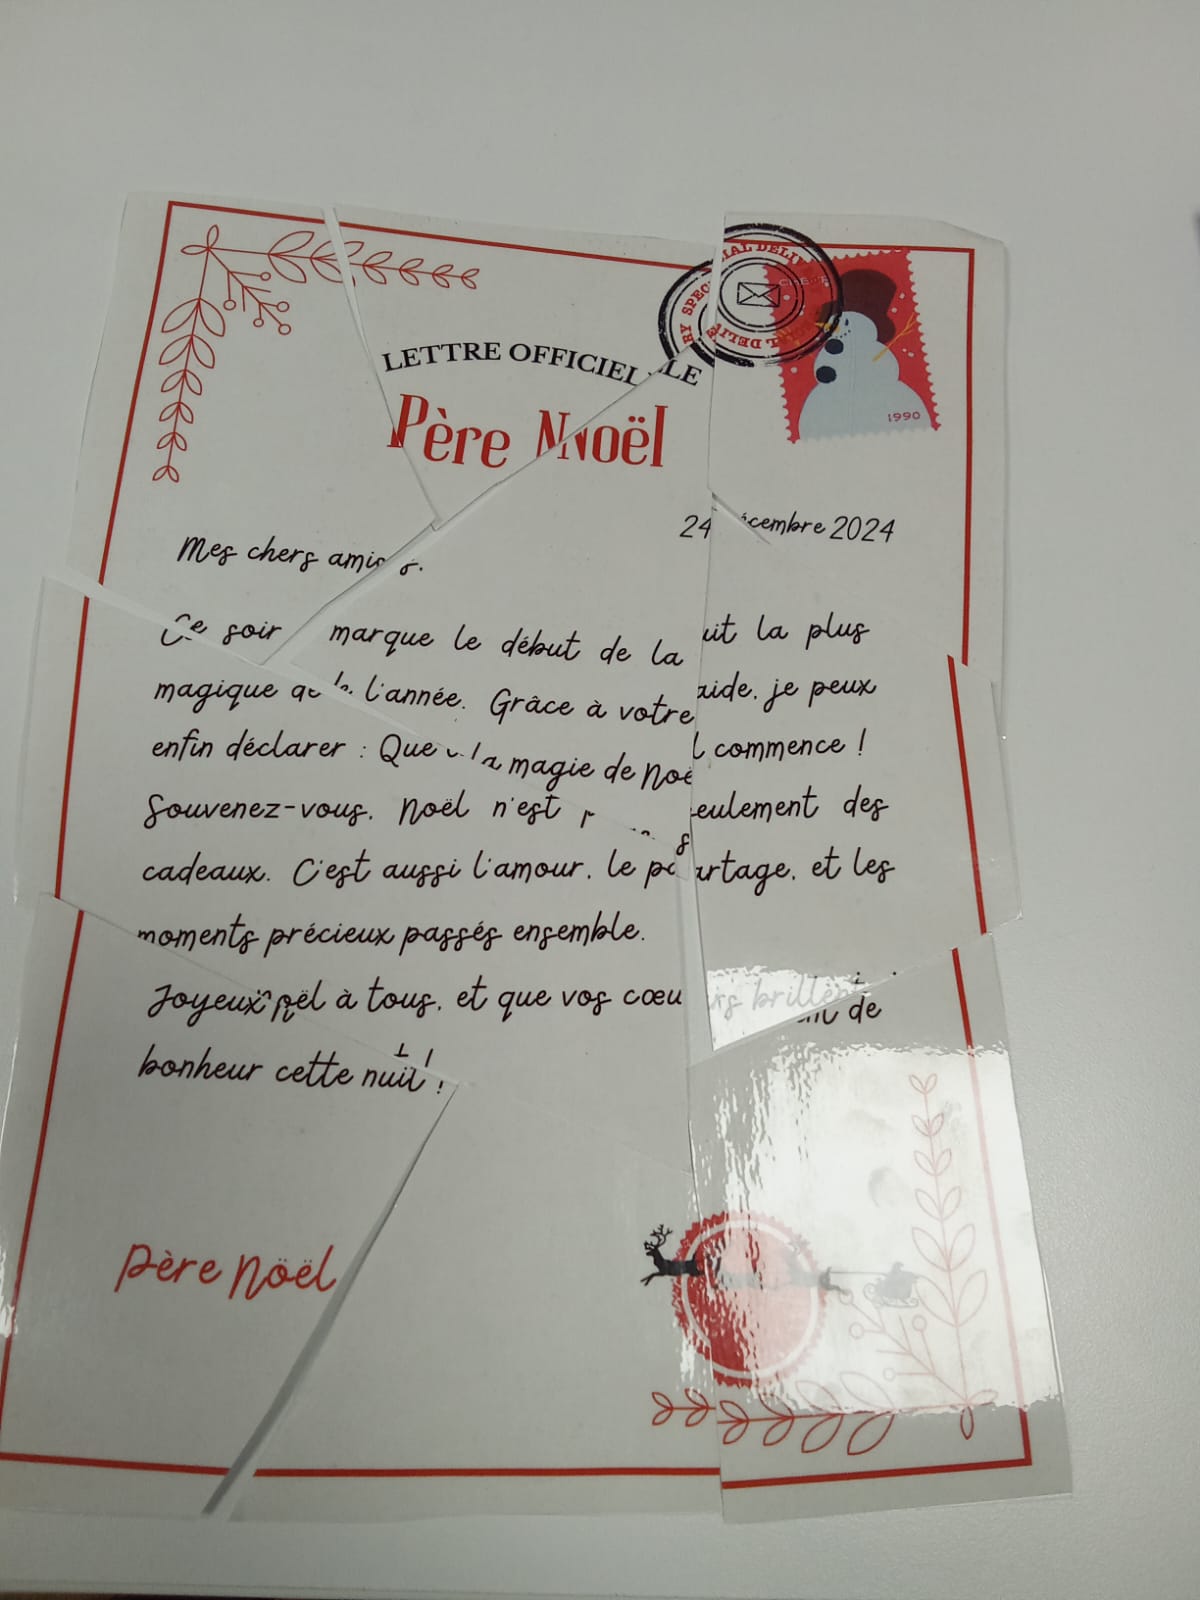 LETTRE OFFICIELLE
Père Noël
BY SPECIAL DELIV
1990
24 décembre 2024
Mes chers amis.
Ce soir marque le début de la nuit la plus
magique de l'année. Grâce à votre aide, je peux
enfin déclarer : Que la magie de Noël commence !
Souvenez-vous, Noël n'est pas seulement des
cadeaux. C'est aussi l'amour, le partage, et les
moments précieux passés ensemble.
Joyeux Noël à tous, et que vos cœurs brillent de
bonheur cette nuit !
Père Noël